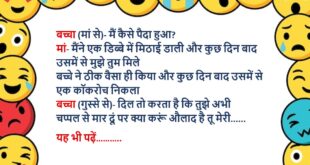 बच्चा (मां से)- मैं कैसे पैदा हुआ?
मां- मैंने एक डिब्बे में मिठाई डाली और कुछ दिन बाद
उसमें से मुझे तुम मिले
बच्चे ने ठीक वैसा ही किया और कुछ दिन बाद उसमें से
एक कॉकरोच निकला
बच्चा (गुस्से से)- दिल तो करता है कि तुझे अभी
चप्पल से मार दूं पर क्या करूं औलाद है तू मेरी......
यह भी पढ़ें...........